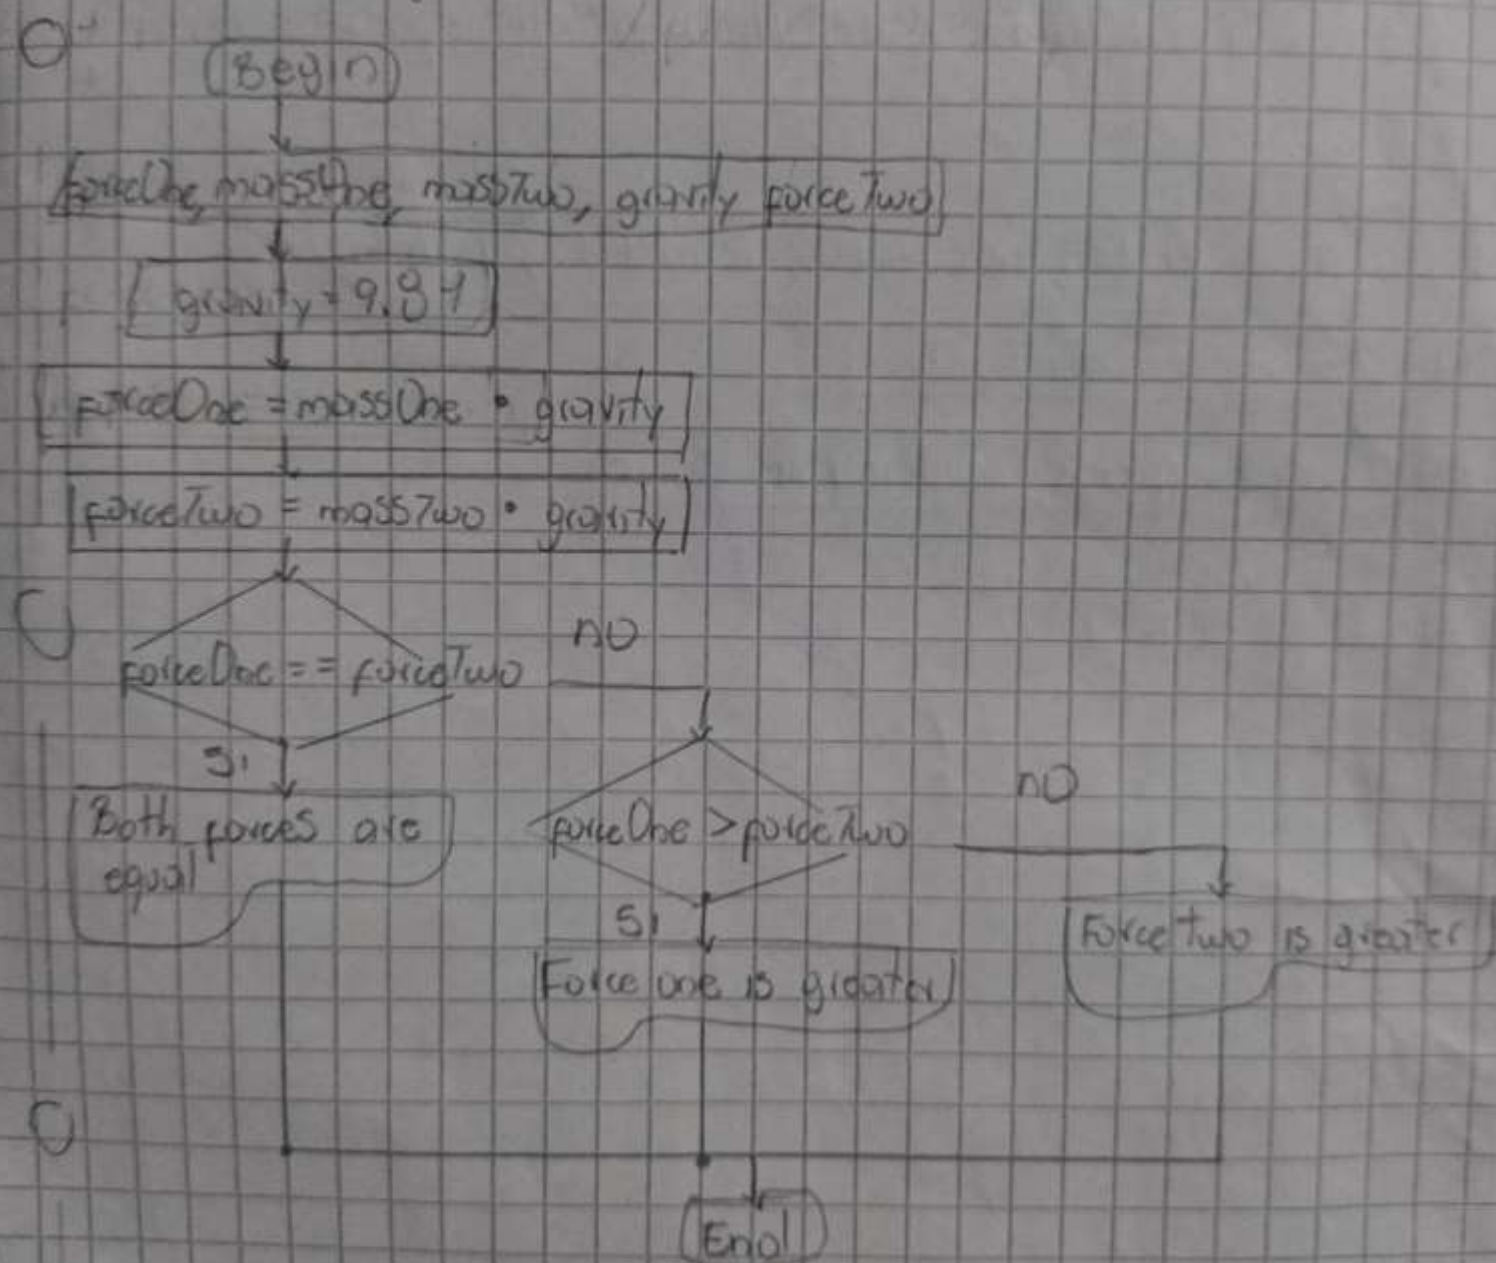 Begin
forceOne, massOne, massTwo, gravity forceTwo
gravity = 9.81
forceOne = massOne • gravity
forceTwo = massTwo • gravity
no
forceOne == forceTwo
Si
no
Both forces are
equal
forceOne > forceTwo
Si
Force two is greater
Force one is greater
End